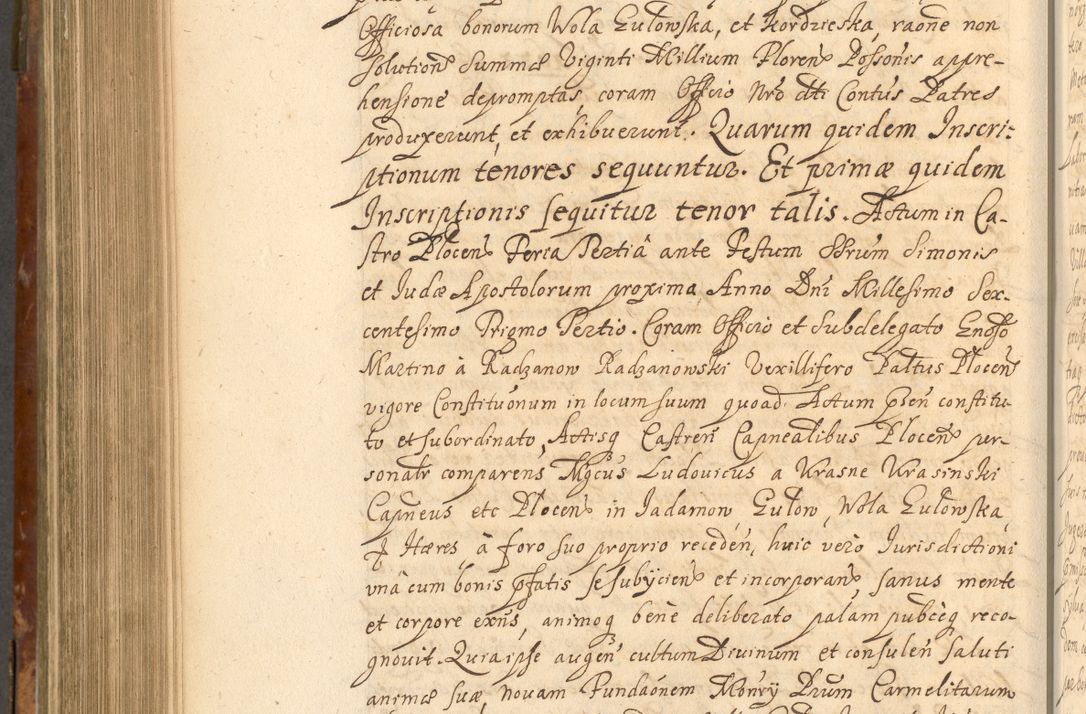 Officiosa bonorum Wola Lutowska, et Kordzieska, raone non
Solution Summæ Viginti Millium Floren Possonis appre-
hensione depromptas, coram Officio Nro dti Contus Patres
produxerunt, et exhibuerunt. Quarum quidem Inscri:
ptionum tenores sequuntur. Et primæ quidem
Inscriptionis sequitur tenor talis. Actum in Ca-
stro Plocen Feria Tertiâ ante Festum SSrum Simonis
et Judæ Apostolorum proxima, Anno Dni Millesimo Sex-
centesimo Trigmo Tertio. Coram Officio et Subdelegato Gnoso
Martino à Radzanow Radzanowski Vexillifero Paltus Plocen
vigore Constituonum in locum suum quoad Actum psen constitu-
to et subordinato, Actisq Castren Capnealibus Plocen per-
sonalr comparens Mgcus Ludovicus a Krasne Krasinski
Capneus etc Plocen in Jadamow Lutow, Wola Lutowska,
Hæres, à foro suo proprio receden, huic verò Jurisdictioni
vnâ cum bonis pfatis se subijcien et incorporan, sanus mente
et corpore exns, animoq benè deliberato palam pubceq reco-
gnovit. Quia ipse augen cultum Divinum et consulen saluti
animæ suæ, novam Fundaonem Monry Prum Carmelitarum